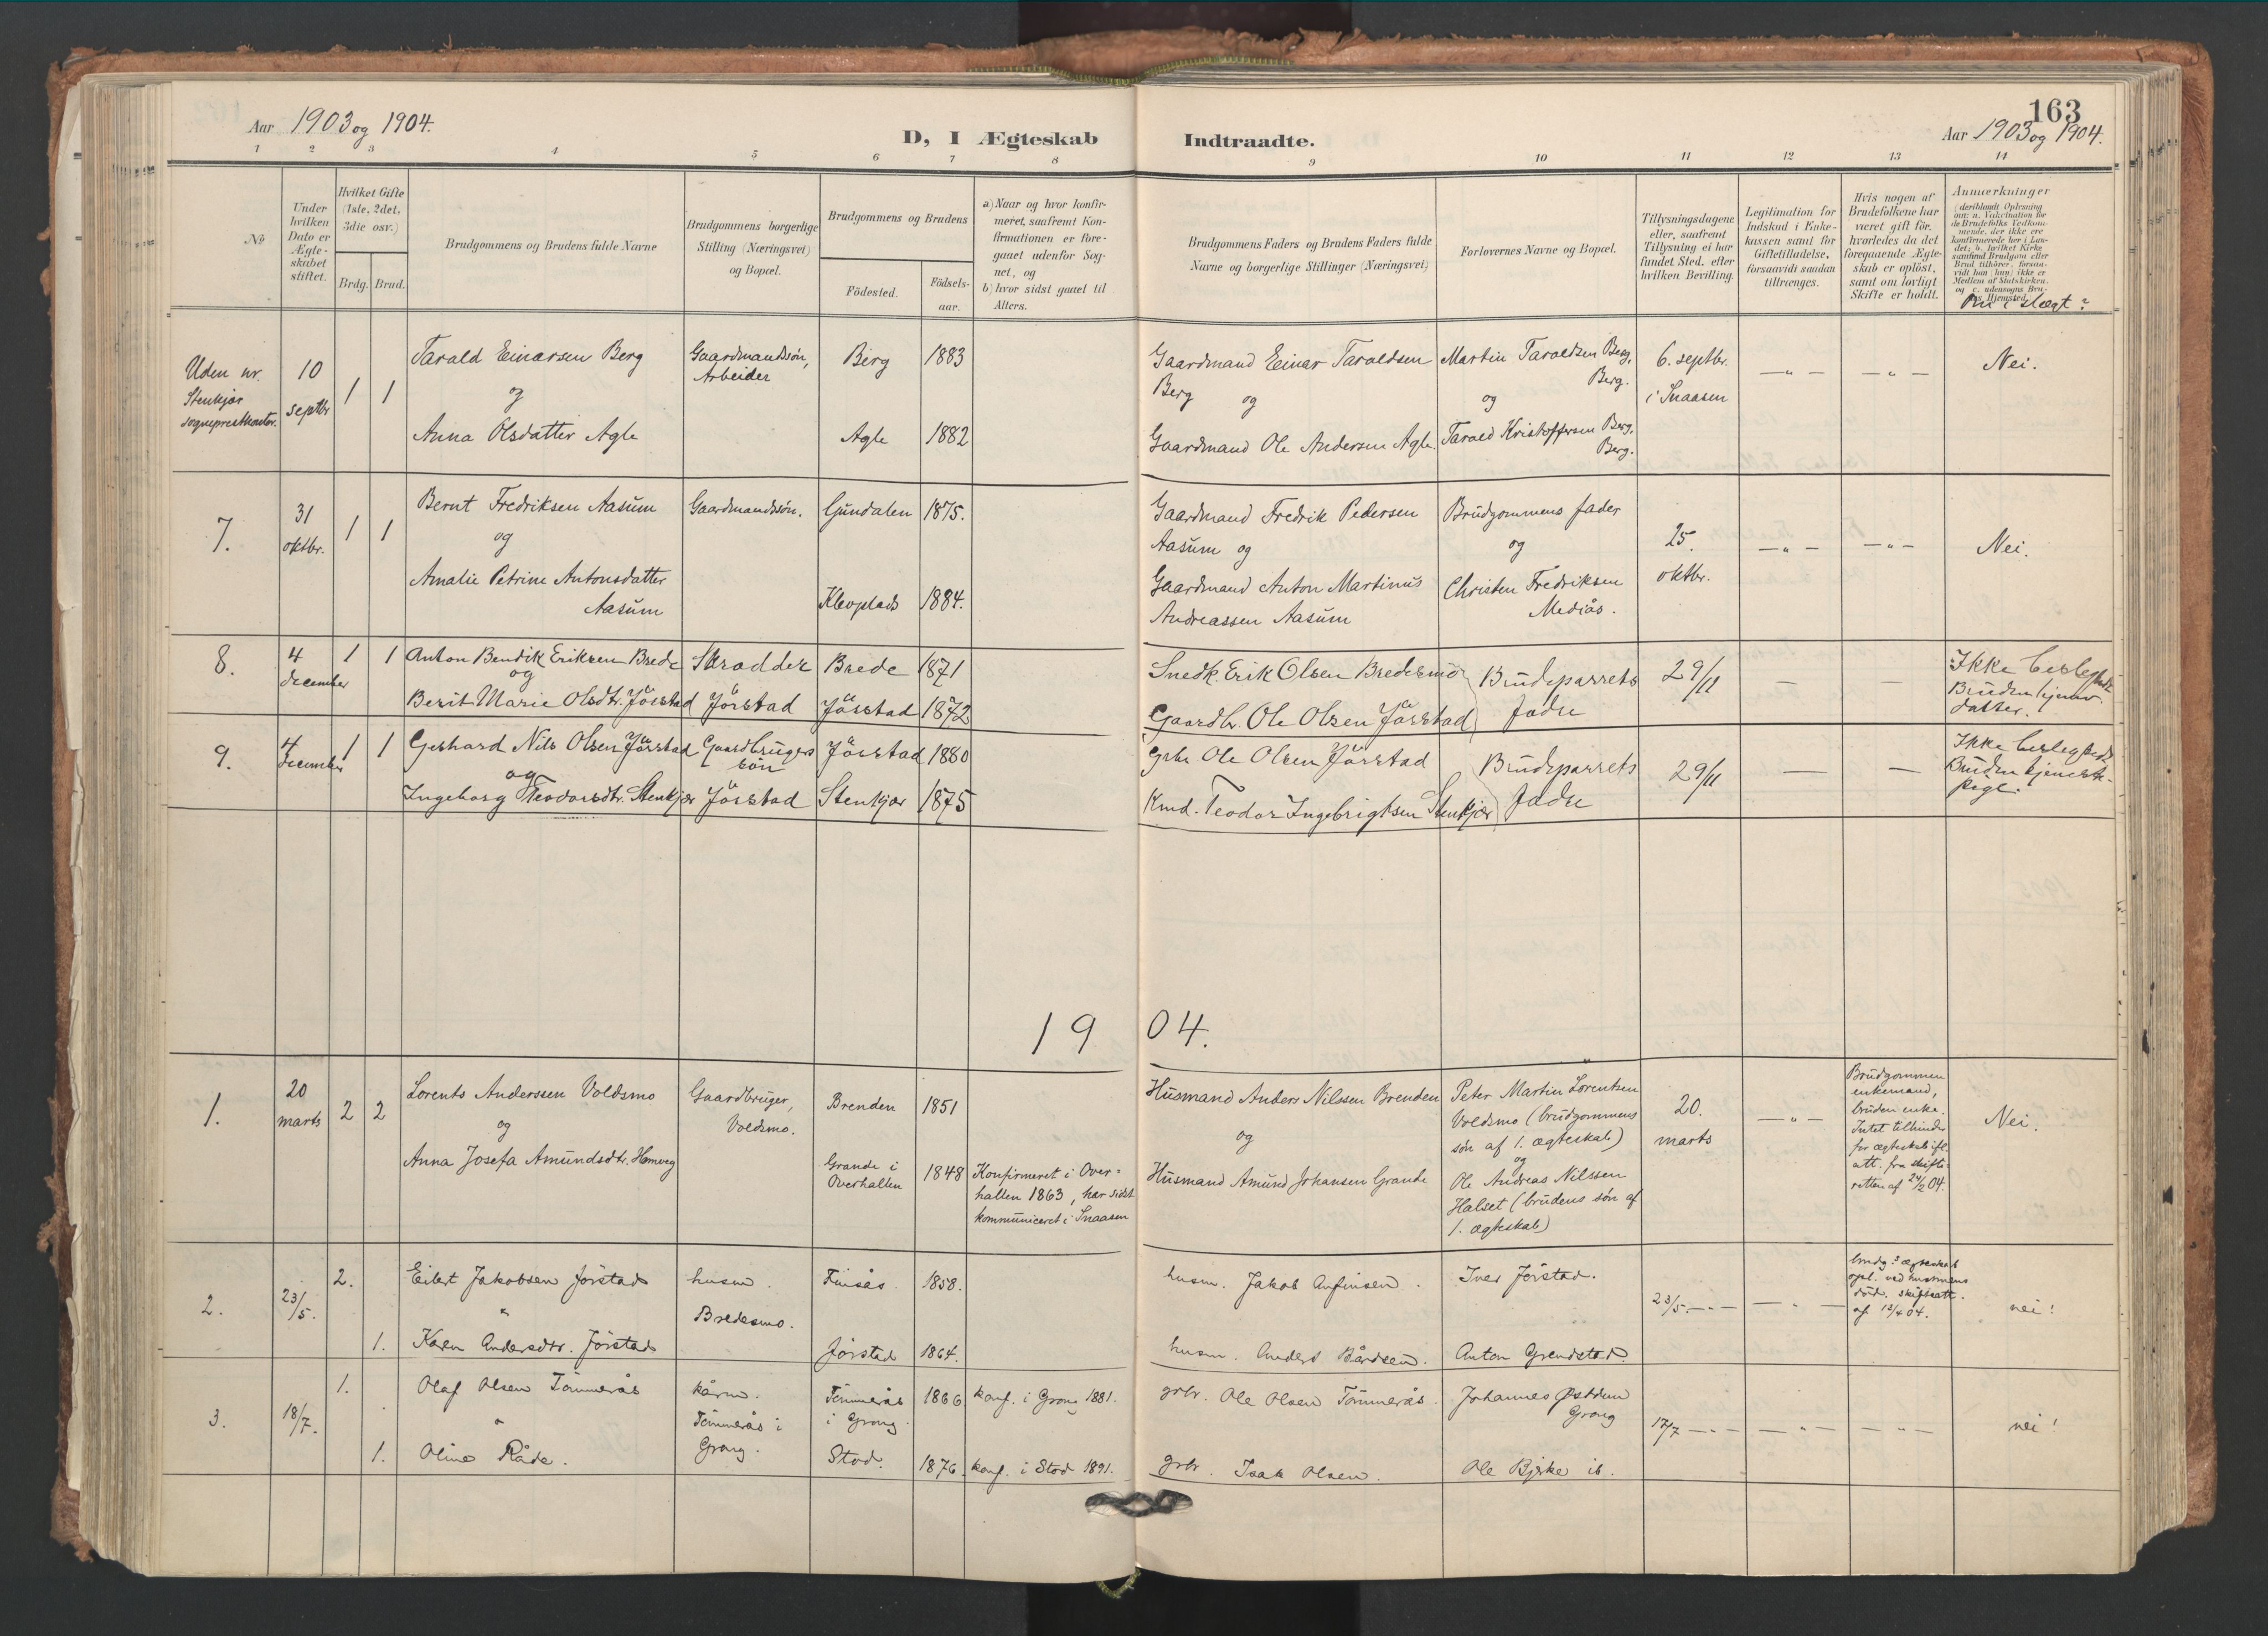 163
Aar 1903 og 1904.
D, I Ægteskab Indtraadte.
Aar 1903 og 1904.
1 2 3 4 5 6 7 8 9 10 11 12 13 14
No
Under hvilken Dato er Ægteskabet stiftet.
Hvilket Gifte (1ste, 2det, 3die osv.)
Brdg. Brud.
Brudgommens og Brudens fulde Navne
Brudgommens borgerlige Stilling (Næringsvei) og Bopæl.
Brudgommens og Brudens
Födested. Födsels-aar.
a) Naar og hvor konfir-
meret, saafremt Kon-
firmationen er fore-
gaaet udenfor Sog-
net, og
b) hvor sidst gaaet til
Alters.
Brudgommens Faders og Brudens Faders fulde
Navne og borgerlige Stillinger (Næringsvei)
Forlovernes Navne og Bopæl.
Tillysningsdagene
eller, saafremt
Tillysning ei har
fundet Sted, efter
hvilken Bevilling.
Legitimation for
Indskud i Enke-
kassen samt for
Giftetilladelse,
forsaavidt saadan
tiltrænges.
Hvis nogen af
Brudefolkene har
været gift før,
hvorledes da det
foregaaende Ægte-
skab er oplöst,
samt om lovligt
Skifte er holdt.
Anmærkninger
(deriblandt Oplysning
om: a. Vakcination for
de Brudefolks Vedkom-
mende, der ikke ere
konfirmerede her i Lan-
det; b. hvilket Kirke-
samfund Brudgom eller
Brud tilhörer, forsaa-
vidt han (hun) ikke er
Medlem af Statskirken,
og c. udensogns Bru-
des Hjemsted.
i slægt?
Uden nr.
Stenkjær
sogneprestkontor.
10 septbr
1 1
Tarald Einarsen Berg
og
Anna Olsdatter Agle
Gaardmandssøn,
Arbeider
Berg 1883
Agle 1882
Gaardmand Einar Taraldsen
Berg og
Gaardmand Ole Andersen Agle.
Martin Taraldsen Berg,
Berg.
og
Tarald Kristoffersen Berg,
Berg.
6. septbr.
i Snaasen
— „ — — „ — Nei.
7.
31 oktbr.
1 1
Bernt Fredriksen Aasum
og
Amalie Petrine Antonsdatter
Aasum
Gaardmandssøn.
Gjundalen 1875.
Klevplads 1884.
Gaardmand Fredrik Pedersen
Aasum og
Gaardmand Anton Martinus
Andreassen Aasum
Brudgommens fader
og
Christen Fredriksen
Mediås.
25. oktbr.
— „ — — „ — Nei.
8. 4 december 1 1
Anton Bendik Eriksen Brede
og
Berit Marie Olsdtr. Jörstad
Skradder
Jörstad
Brede 1871
Jörstad 1872
Snedk. Erik Olsen Bredesmo
Gaardbr. Ole Olsen Jörstad
Brudeparrets
fædre
29/11
— —
Ikke beslegtede
Bruden hjemv.
datter.
9. 4 december 1 1
Gerhard Nils Olsen Jörstad
og
Ingeborg Teodorsdtr. Stenkjær
Gaardbrugers
sön
Jörstad
Jörstad 1880
Stenkjær 1875
Grbr. Ole Olsen Jörstad
Kmd. Teodor Ingebrigtsen Stenkjær
Brudeparrets
fædre
29/11
— —
Ikke beslegtede
Bruden tjeneste-
pige.
1904.
1. 20 marts 2 2
Lorents Anderssen Voldsmo
og
Anna Josefa Amundsdtr. Homveg
Gaardbruger,
Voldsmo.
Brenden 1851
Grande i
Overhallen 1848
Konfirmeret i Over-
hallen 1863, har sidst
kommuniceret i Snaasen
Husmand Anders Nilssen Brenden
og
Husmand Amund Johansen Grande
Peter Martin Lorentsen
Voldsmo (brudgommens
søn af 1. ægteskab)
og
Ole Andreas Nilssen
Halset (brudens søn af
1. ægteskab)
20. marts
— „ —
Brudgommen
enkemand,
bruden enke.
Intet tilhinder
for ægteskab ifl.
att. fra skifte-
retten af 24/2 04.
Nei.
2. 23/5. 2.
1.
Eilert Jakobsen Jörstad
„
Karen Andersdtr. Jörstad
husm.
Bredesmo.
Finsås 1858.
Jörstad 1864.
husm. Jakob Anfinsen.
husm. Anders Bårdsen.
Iver Jörstad.
Anton Grendstad.
23/5. — „ — — „ —
brudg.s ægteskab
opl. ved hustruens
död. skifteatt.
af 13/4 04.
nei!
3. 18/7. 1.
1.
Olaf Olsen Tömmerås
„
Oline Råde.
kårm.
Tömmerås i
Grong.
Tömmerås
i Grong. 1866
Stod. 1876.
konf. i Grong 1881.
konf. i Stod 1891.
grbr. Ole Olsen Tömmerås.
grbr. Isak Olsen.
Johannes Östdun
Grong
Ole Bjerke ib.
17/7 — „ — — „ — — „ — nei!